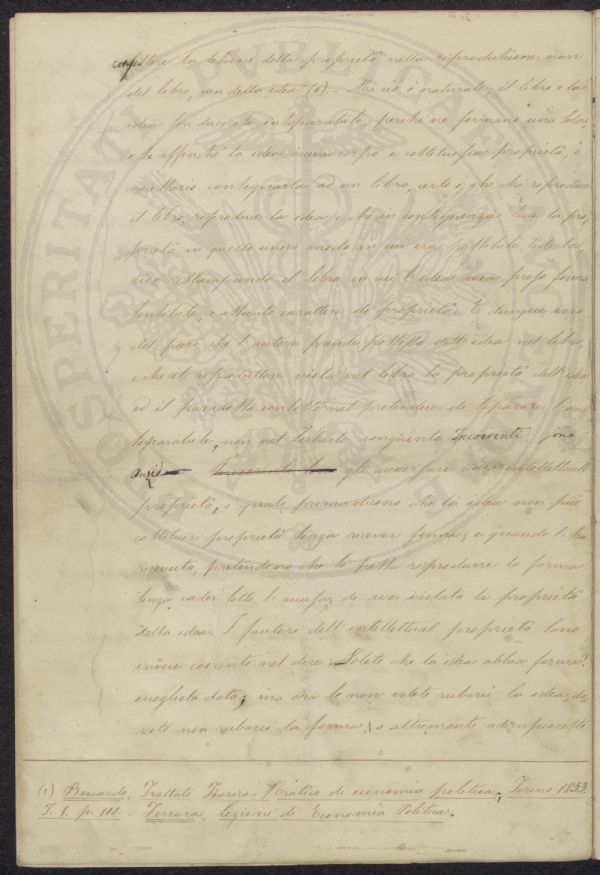 consistere la lesione della proprietà nella riproduzione non
del libro, ma della idea (1). – Ma ciò è naturale; il libro e la
idea son due cose inseparabili, perché ne formano una sola;
e se affinché la idea riceva corpo e costituisca proprietà, è
necessario consegnarla ad un libro, certo è, che chi riproduce
il libro, riproduce la idea, e che in conseguenza lede la pro,
prietà in quello unico modo in cui era possibile lederla
cioè ristampando il libro in cui l'idea avea preso forma
sensibile, e assunto carattere di proprietà. E dunque vero
del pari che l'autore prende possesso dell'idea nel libro,
e che il riproduttore viola nel libro la proprietà dell'idea:
ed il paradosso consiste nel pretendere di separare l'in,
separabile, non nel serbarlo congiunto. Incoerenti sono
anzi gli avversari della intellettuale
proprietà, i quali prima dicono che la idea non può
costituir proprietà senza ricever forma; e quando l'ha
ricevuta, pretendono che se possa riprodurre la forma
senza cader sotto l'accusa di aver violata la proprietà
della idea. I fautori dell'intellettual proprietà sono
invece coerenti nel dire: Volete che la idea abbia forma?
eccogliela data; ma ora se non volete rubarci la idea, do,
vete non rubarci la forma; o altrimenti adempireste
(1) Boccardo, Trattato Teorico-Pratico di economia politica, Torino 1853.
T. 1. p. 110. – Ferrara, Lezioni di Economia Politica.
PROSPERITATI PUBLICAE AUGENDAE